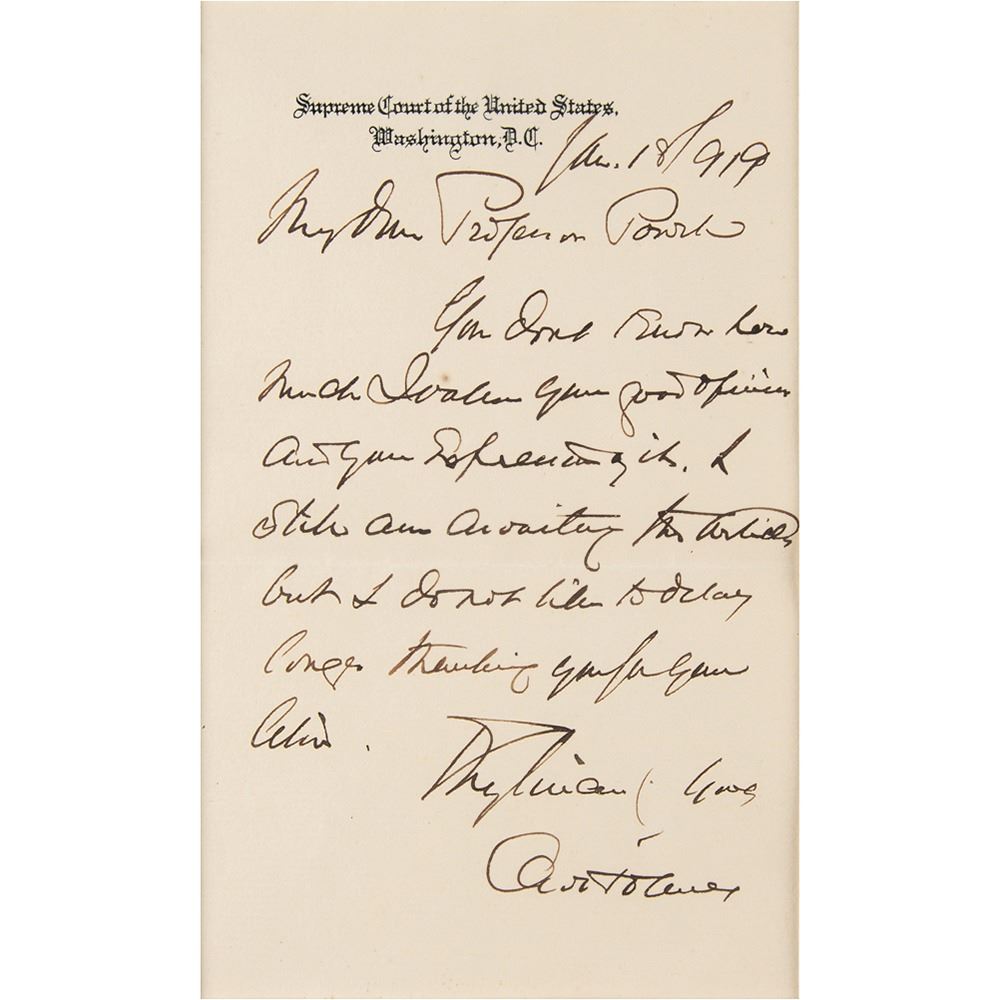 Supreme Court of the United States,
Washington, D.C.
Jan. 18/919
My dear Professor Powell
You dont know how
much I value your good opinion
and your expression of it. I
still am awaiting the articles
but I do not like to delay
longer thanking you for your
letter.
Very sincerely yours
OW Holmes